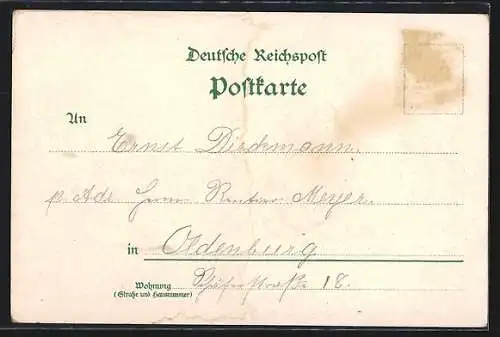 Deutsche Reichspost
Postkarte
An Ernst Dieckmann
p. Adr. Herrn Rentner Meyer
in Oldenburg
Wohnung Schäferstraße 18.
(Straße und Hausnummer)